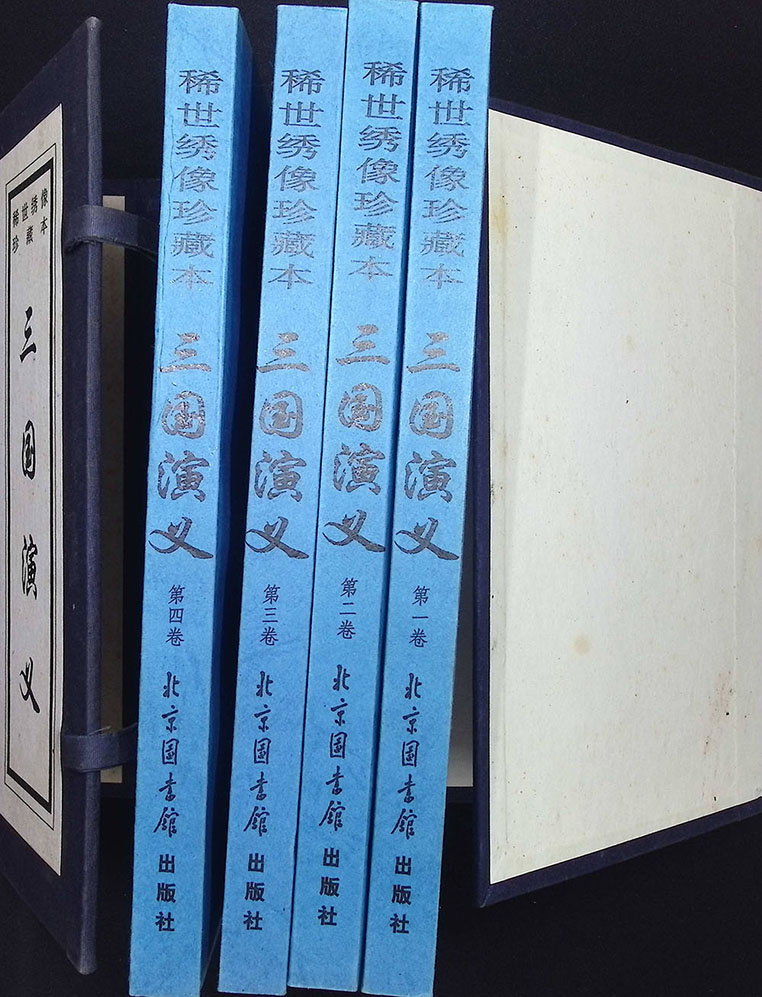 稀世绣像
珍藏本
三国演义
稀世绣像珍藏本
三国演义
第四卷
北京图书馆
出版社
稀世绣像珍藏本
三国演义
第三卷
北京图书馆
出版社
稀世绣像珍藏本
三国演义
第二卷
北京图书馆
出版社
稀世绣像珍藏本
三国演义
第一卷
北京图书馆
出版社